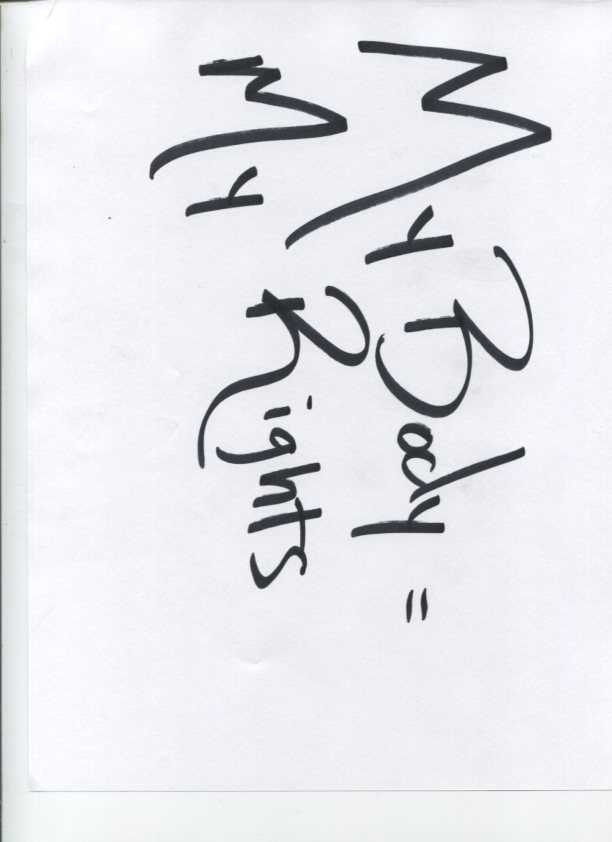 My Body =
My Rights